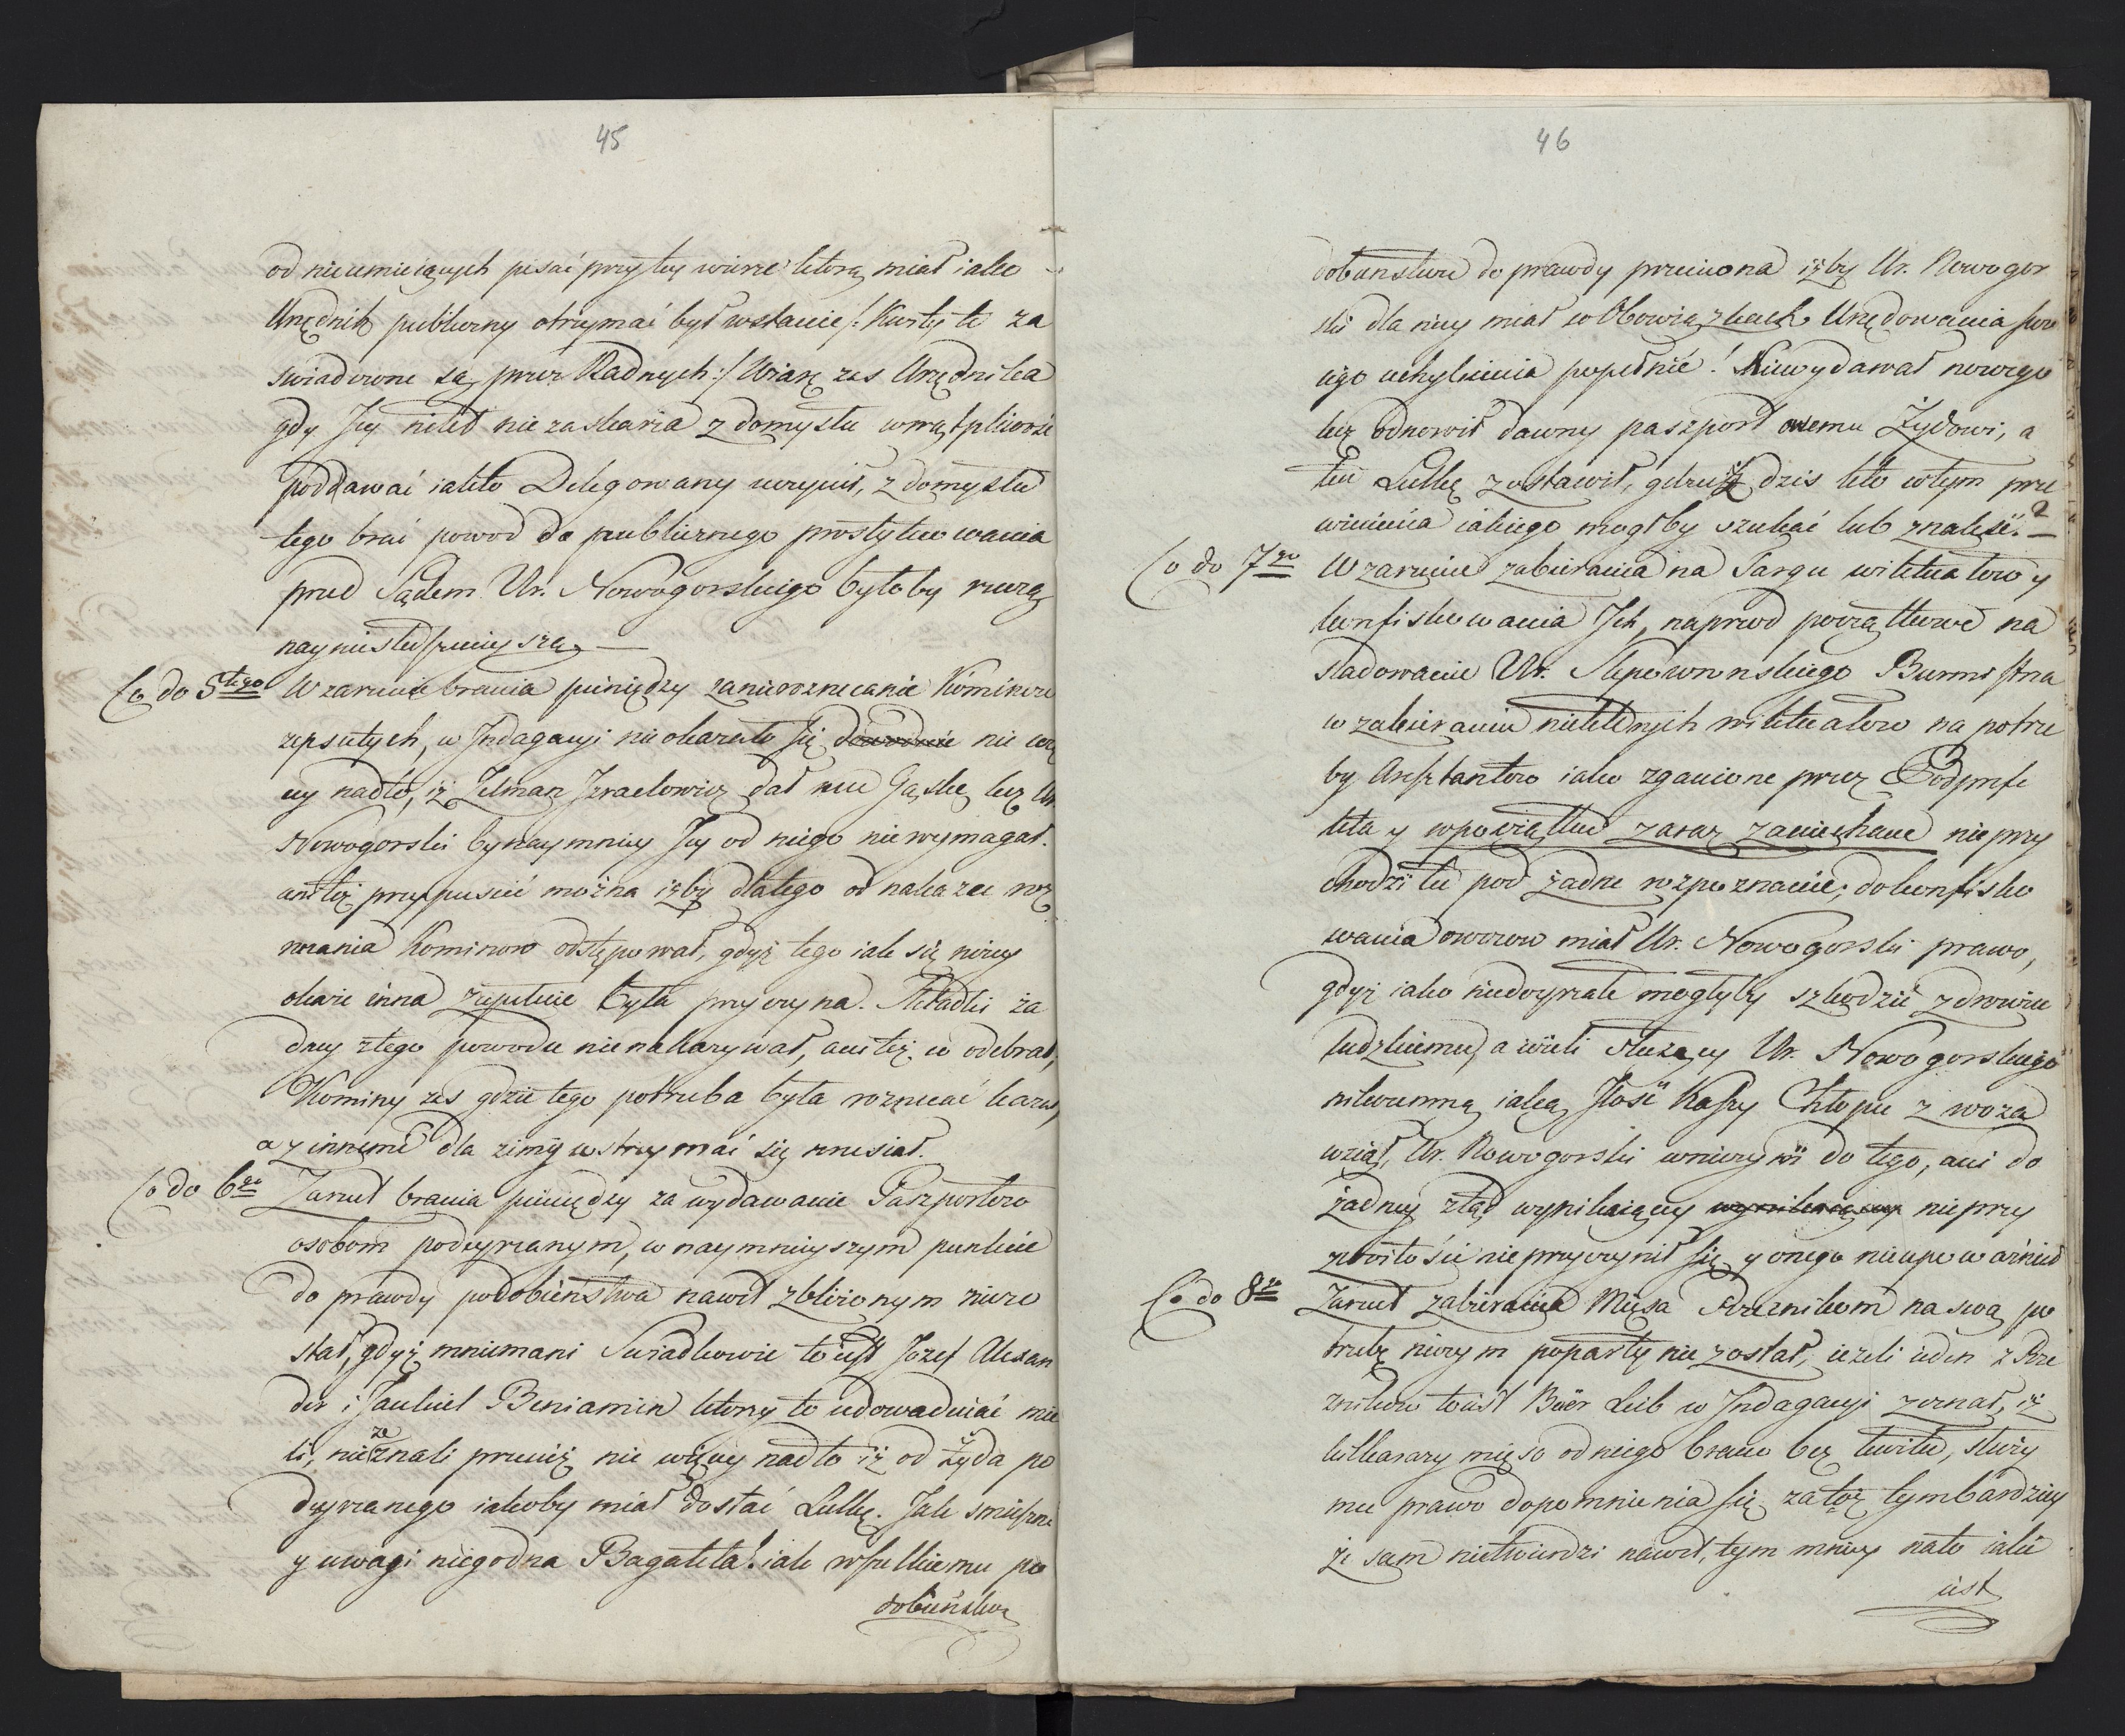 45
od nieumieiących pisać przy tey wierze którą miał iako
Urzędnik publiczny otrzymać był wstanie /: Kwity te za
swiadczone są przez Radnych :/ Wiarę zas Urzędnika
gdy Jey nikt nie zaskarża z domysłu w wątpliwość
poddawać iak to Delegowany uczynił, z domysłu
tego brać powod do publicznego prostytuowania
przed Sądem Ur. Nowogorskiego byłoby rzeczą
naynieslusznieyszą —
Co do 5tego W zarzucie brania pieniędzy za nierozrzucanie Kominow
zepsutych, w Jndagacyi nie okazało się dowodnie nic wię
cy nadto, iż Zelman Jzraelowicz dał mu Gąskę lecz Ur.
Nowogorski bynaymniey Jey od niego nie wymagał.
ani też przypuscić można iżby dlatego od nakazu roz
rzucania Kominow odstępował, gdyż tego iak się niżey
okaże inna zupełnie była przyczyna. Składki ża
dney z tego powodu nie nakazywał, ani też co odebrał,
Kominy zas gdzie tego potrzeba była rozrzucać kazał,
a z innemi dla zimy wstrzymać się musiał.
Co do 6go Zarzut brania pieniędzy za wydawanie Paszportow
osobom podeyrzanym, w naymnieyszym punkcie
do prawdy podobieństwa nawet zbliżonym niezo
stał, gdyż mniemani Swiadkowie to iest Józef Alexan
der i Jankiel Beniamin ktorzy to udowadniać mie
li, nie zeznali przecież nic więcy nadto iż od Żyda po
deyrzanego iakoby miał dostać Lulkę. Jak smieszna
y uwagi niegodna Bagatela! iak wszelkiemu po
dobieństwu
46
dobieństwu do prawdy przeciwna iżby Ur. Nowogor
ski dla niey miał w Obowiązkach Urzędowania swo
iego uchylenia popełnić! Niewydawał nowego
lecz odnowił dawny paszport owemu Żydowi, a
ten Lulkę zostawił, gdzież dzis kto w tym prze
winienia iakiego mogłby szukać lub znaleść? —
Co do 7go W zarzucie zabierania na Targu wiktuałow y
konfiskowania Jch, naprzod początkowe na
sladowanie Ur. Slepowronskiego Burmistrza
w zabieraniu niektorych wiktuałow na potrze
by Aresztantow iako zganione przez Podprefe
kta y wpoczątku zaraz zaniechane nie przy
chodzi tu pod żadne rozpoznanie; do konfisko
wania owocow miał Ur. Nowogorski prawo,
gdyż iako niedoyrzałe mogłyby szkodzić zdrowiu
ludzkiemu, a ieżeli służący Ur. Nowogorskiego
nikczemną iaką Jlość Kaszy Chłopu z woza
wziął, Ur. Nowogorski w niczym do tego, ani do
żadney ztąd wynikaiącey wynikaiącey nieprzy
zwoitości nie przyczynił się, y onego nieupoważnił
Co do 8o Zarzut zabierania Mięsa Rzeznikom na swą po
trzebę niczym poparty nie został, ieżeli ieden z Rze
znikow to iest Beer Leib w Jndagacyi zeznał, iż
kilka razy mięso od niego brano bez kwitu, służy
mu prawo dopomnienia się zato, tymbardziey
że sam nietwierdzi nawet, tym mniey nato iakie
iest